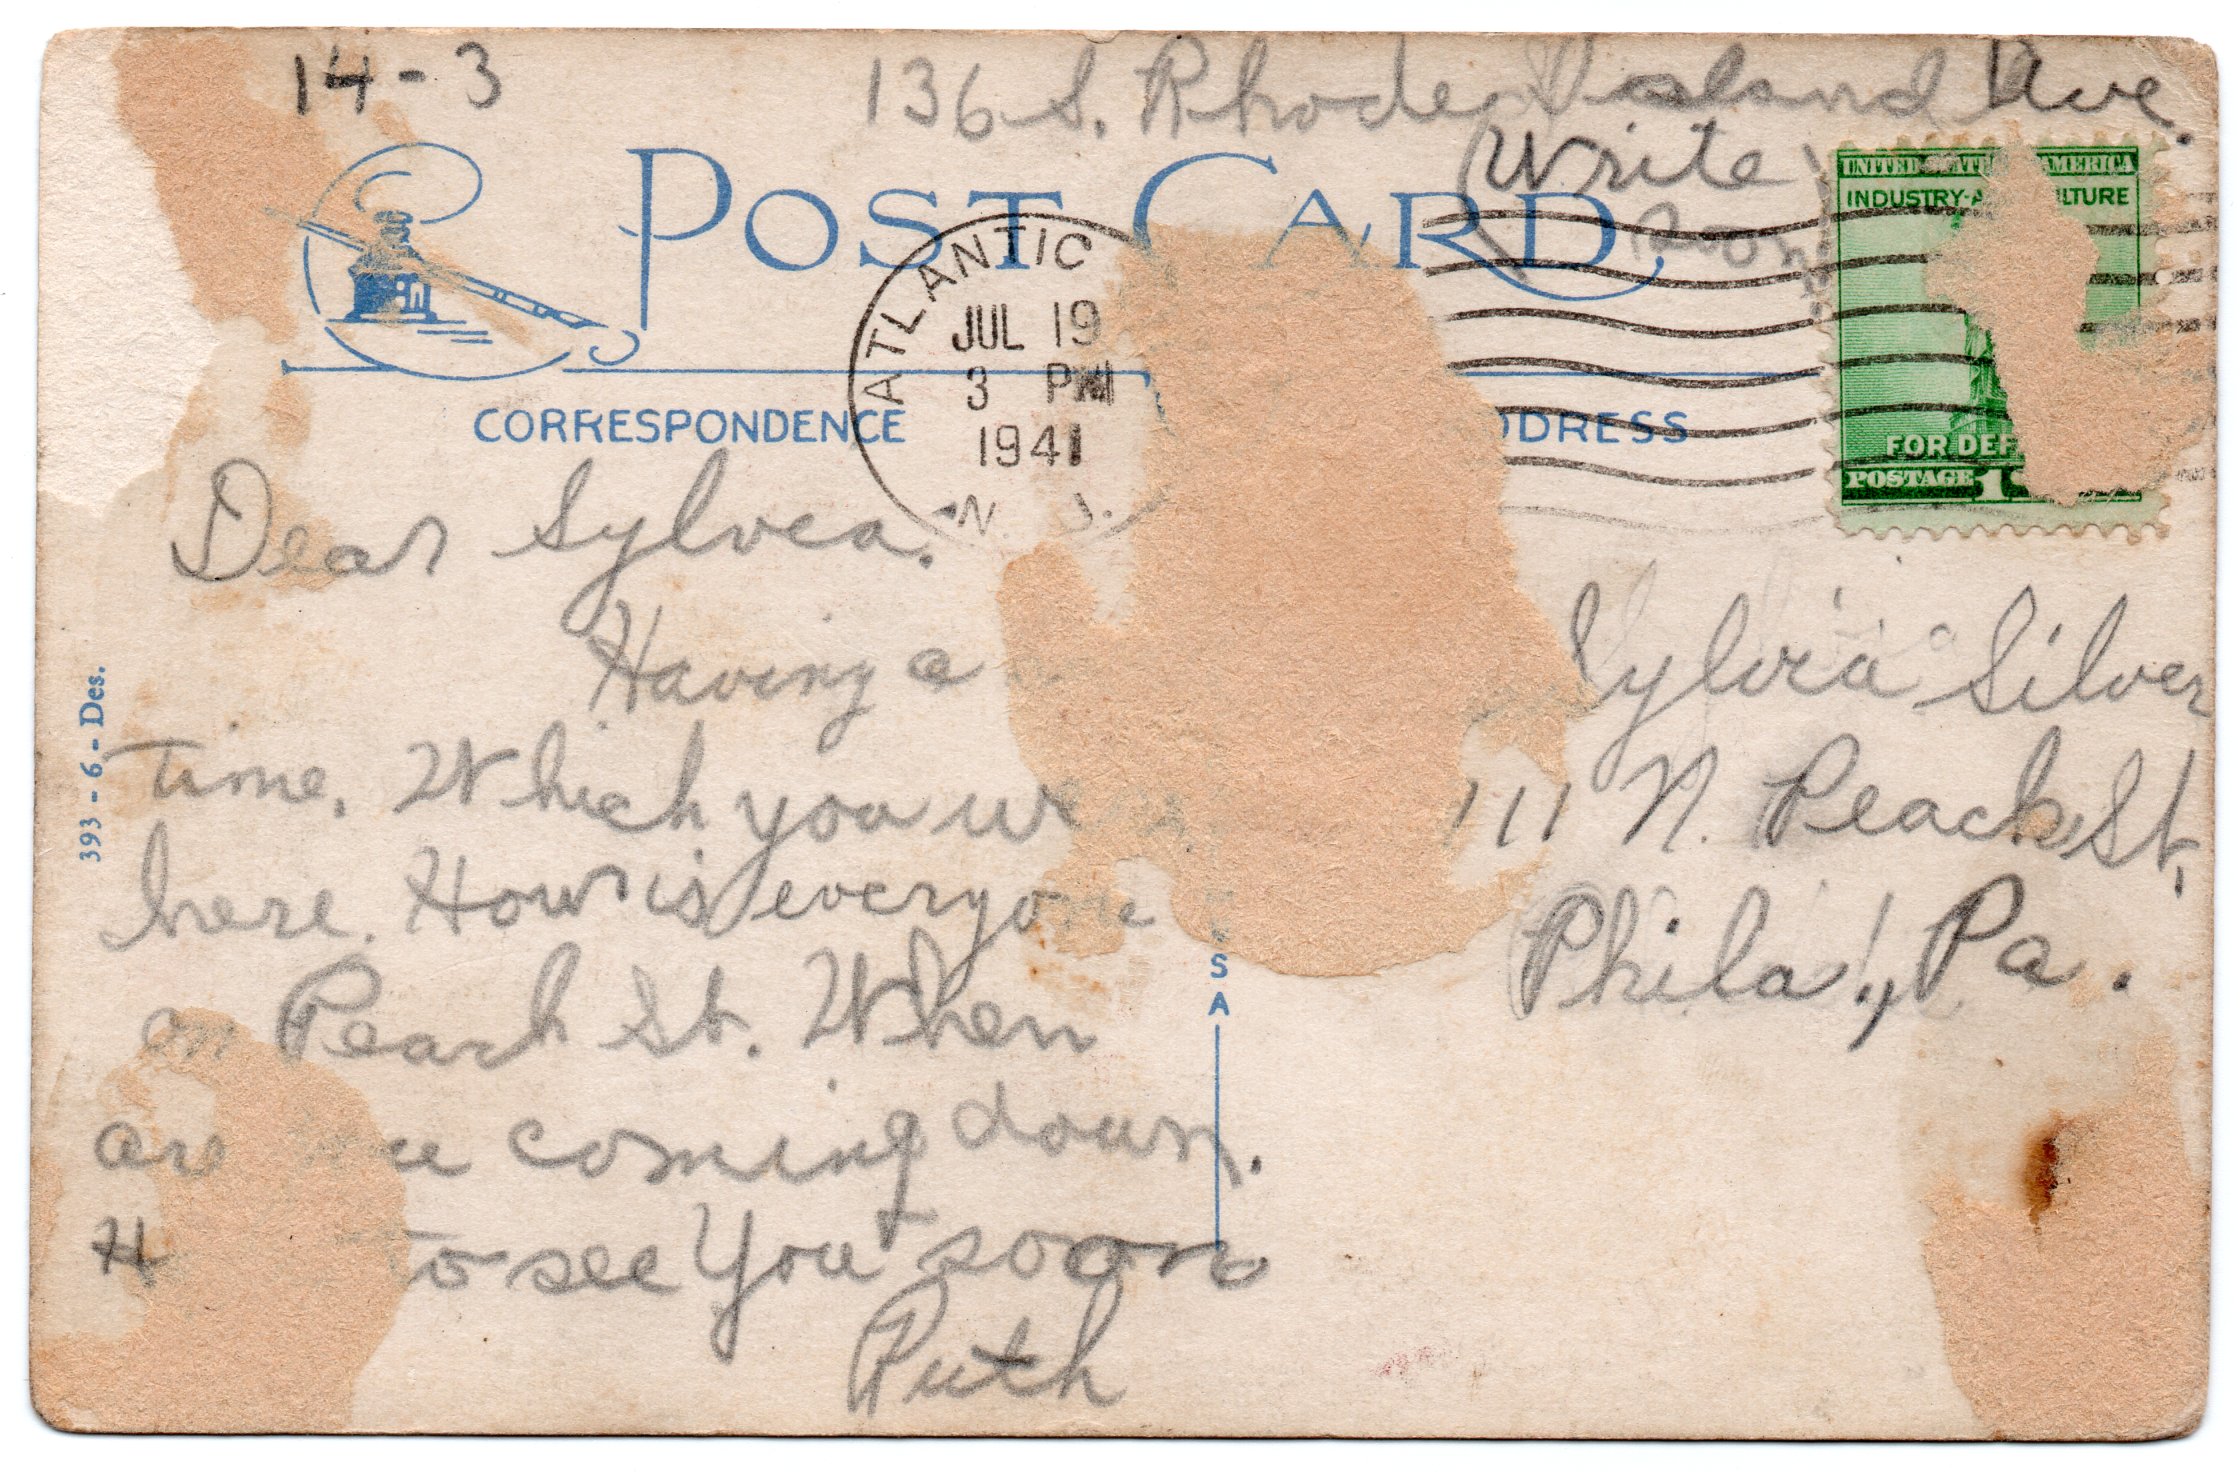 14-3
136 S. Rhode Island Ave.
(Write
Soon)
POST CARD
UNITED STATES AMERICA
INDUSTRY-A LTURE
FOR DEF
POSTAGE 1
ATLANTIC
JUL 19
3 PM
1941
N. J.
CORRESPONDENCE
DDRESS
Dear Sylvea.
Having a
time. Which you
here. How is everyone
on Peach St. When
are coming down.
to see you soon
Ruth
Sylvia Silver
111 N. Peach St.
Phila., Pa.
393 - 6 - Des.
S A